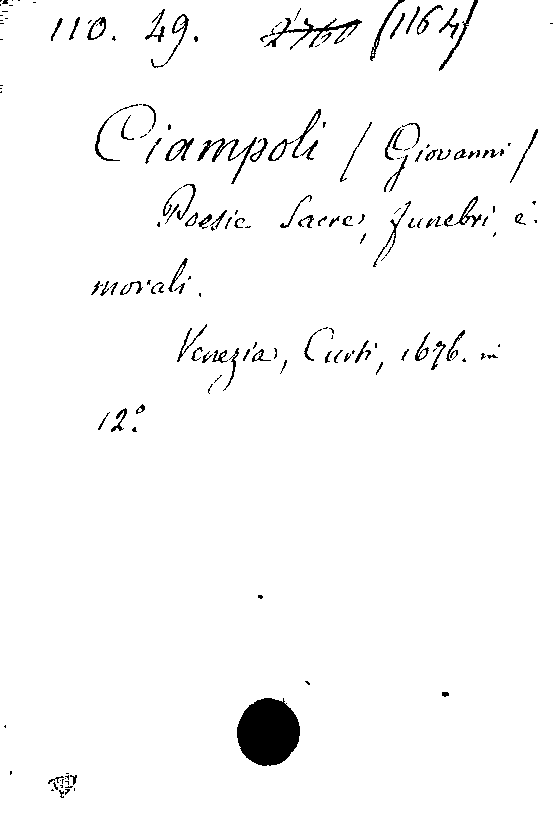 110. 49. 2760 (1164)
Ciampoli / Giovanni /
Poesie Sacre, funebri, e
morali.
Venezia, Curti, 1676. in
12º